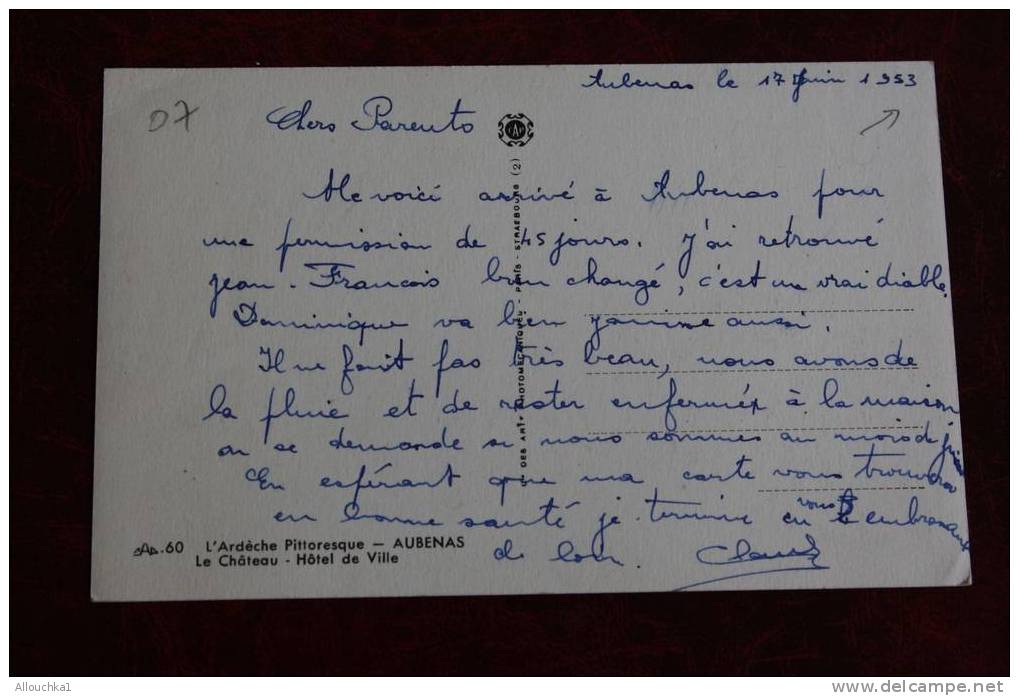 Aubenas le 17 Juin 1953
07
Chers Parents
Me voici arrivé à Aubenas pour
une permission de 45 jours. J'ai retrouvé
Jean-Francois bien changé, c'est un vrai diable.
Dominique va bien Janine aussi.
Il ne fait pas très beau, nous avons de
la pluie et de rester enfermés à la maison
on se demande si nous sommes au mois de juin
En espérant que ma carte vous trouvera
en bonne santé je termine en vous embrassant
de loin. Claude
60 L'Ardèche Pittoresque — AUBENAS
Le Château - Hôtel de Ville
DES ARTS PHOTOMECANIQUES - PARIS - STRASBOURG (2)
Allouchka1
http://www.delcampe.net